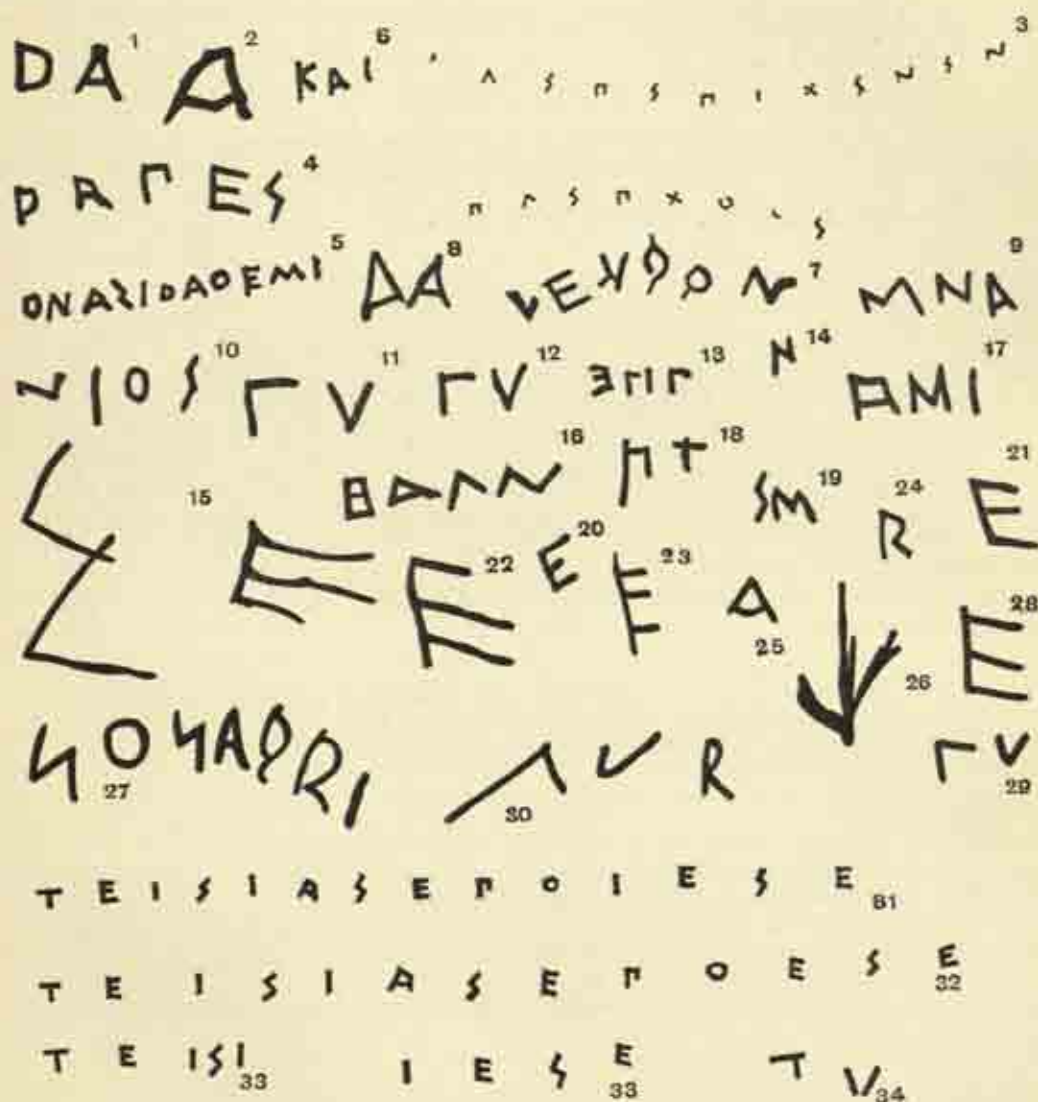 DA 1 Α 2 ΚΑΙ 6 Λ Σ Π Σ Π Ι Χ Σ Ν Σ Ν 3
DΑΠΕΣ 4 Π Λ Σ Π Χ Ο Ι Σ
ΟΝΑΣΙDΑΟΕΜΙ 5 ΔΑ 8 ΛΕVϘΟΝ 7 ΜΝΑ 9
ΝΙΟΣ 10 ΓV 11 ΓV 12 ΕΠΓ 13 Ν 14 ΑΜΙ 17
Σ 15 Ε ΒΑΓΝ 16 ΠΤ 18 ΣΜ 19 R 24 Ε 21
Ε 22 Ε 20 Ε 23 Α 25 ↓ 26 Ε 28
ΣΟΣΑϘRΙ 27 ΛVR 30 ΓV 29
ΤΕΙΣΙΑΣΕΠΟΙΕΣΕ 31
ΤΕΙΣΙΑΣΕΠΟΕΣΕ 32
ΤΕΙΣΙ 33 ΙΕΣΕ 33 ΤV 34